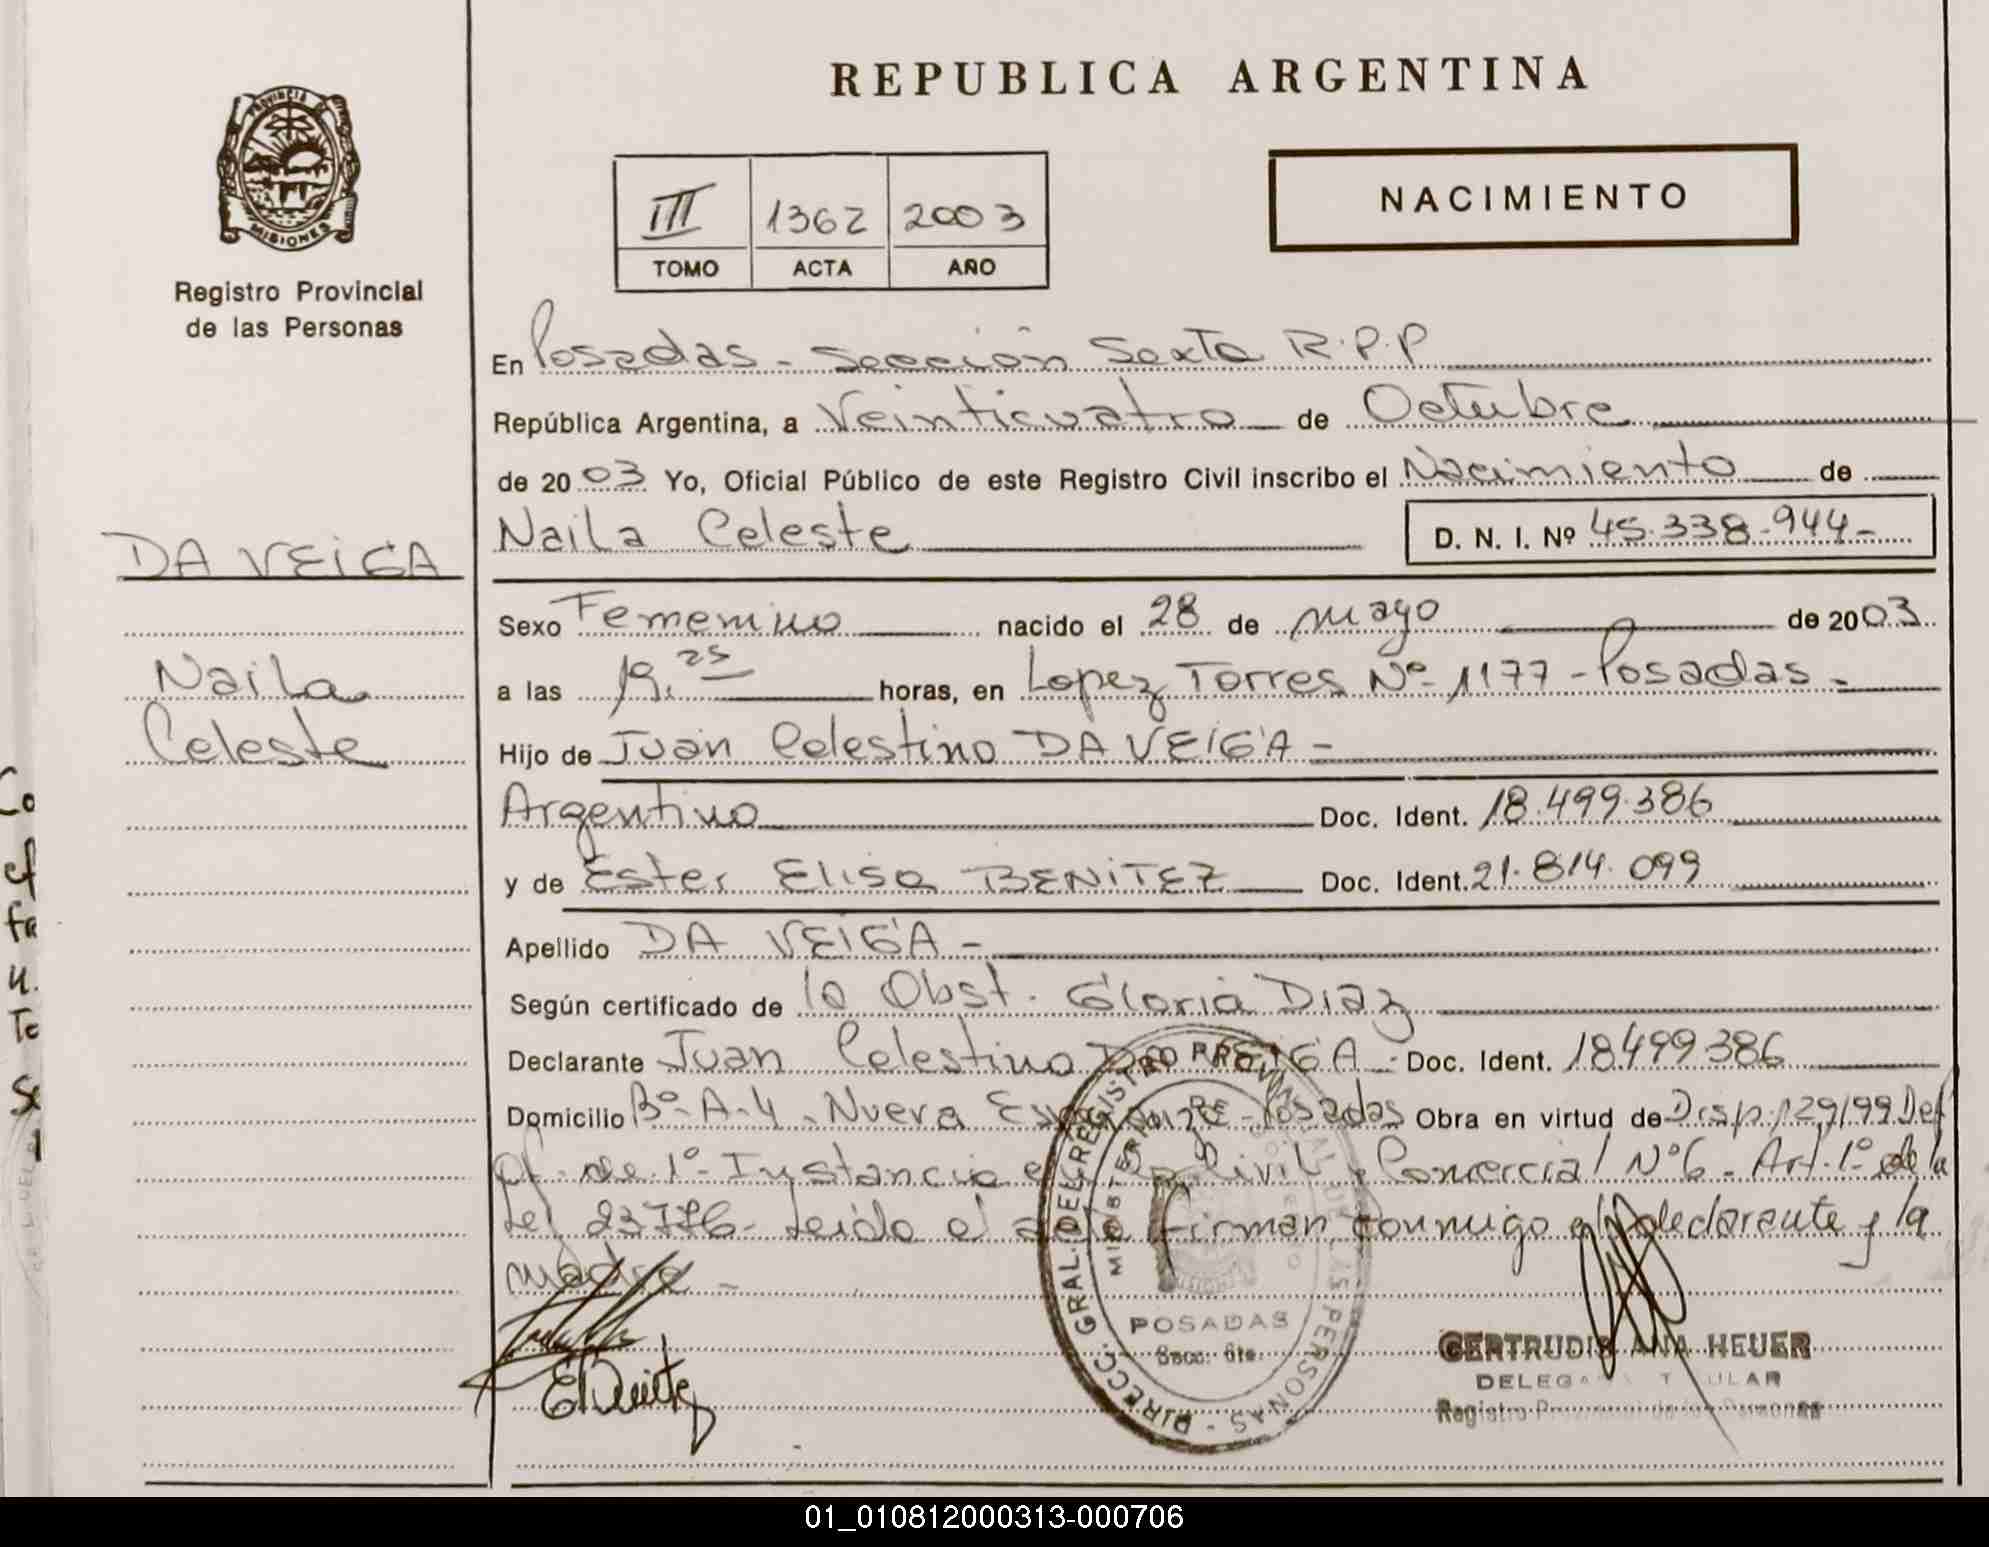 REPUBLICA ARGENTINA
PROVINCIA DE
MISIONES
Registro Provincial
de las Personas
III 1362 2003
TOMO ACTA AÑO
NACIMIENTO
En Posadas - Sección Sexta R.P.P
República Argentina, a Veinticuatro de Octubre
de 2003 Yo, Oficial Público de este Registro Civil inscribo el Nacimiento de
Naila Celeste
D. N. I. Nº 45.338.944-
DA VEIGA
Naila
Celeste
Sexo Femenino nacido el 28 de mayo de 2003
a las 19.25 horas, en Lopez Torres Nº 1177 - Posadas -
Hijo de Juan Celestino DA VEIGA -
Argentino Doc. Ident. 18.499.386
y de Ester Elisa BENITEZ Doc. Ident. 21.814.099
Apellido DA VEIGA -
Según certificado de la Obst. Gloria Diaz
Declarante Juan Celestino DA VEIGA - Doc. Ident. 18.499.386
Domicilio Bº-A-4 - Nueva Esperanza - Posadas Obra en virtud de Disp. 129/99 Def
Of. de 1º Instancia en lo Civil y Comercial Nº 6 - Art. 1º de la
Ley 23776 - Leido el acta firman conmigo el declarante y la
madre -
EBenitez
DIRECC. GRAL. DEL REGISTRO PROVINCIAL DE LAS PERSONAS
MINISTERIO DE GOBIERNO
POSADAS
Secc. 6ta.
GERTRUDIS ANA HEUER
DELEGADA TITULAR
Registro Provincial de las Personas
01_010812000313-000706